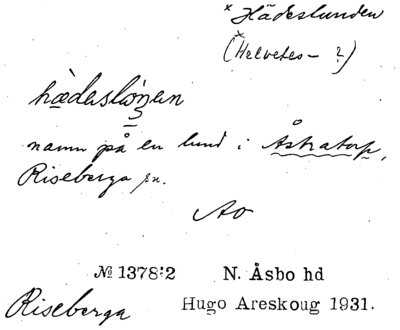 * Hädeslunden
(*Helvetes- ?)
hàdaslónen
namn på en lund i Åstratorp,
Riseberga sn.
Ao
№ 1378:2 N. Åsbo hd
Riseberga Hugo Areskoug 1931.